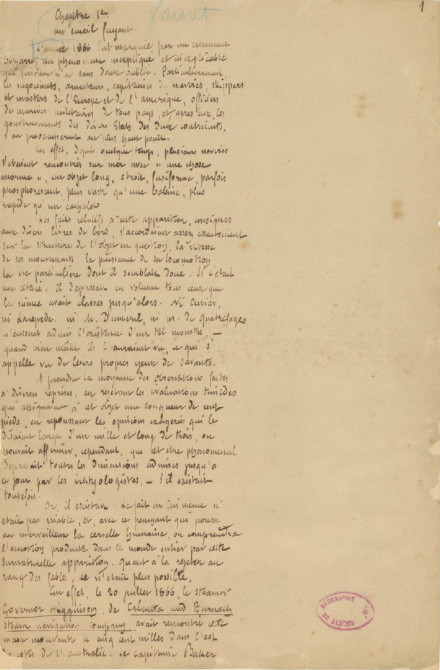 1
Chapitre 1er
un écueil fuyant
L'année 1866 fut marquée par un événement
bizarre, un phénomène inexpliqué et inexplicable
que personne n'a sans doute oublié. Particulièrement
les négociants, armateurs, capitaines de navires, skippers
et masters de l'Europe et de l'Amérique, officiers
des marines militaires de tous pays, et après eux, les
gouvernements des divers États des deux continents,
s'en préoccupèrent au plus haut point.
En effet, depuis quelque temps, plusieurs navires
s'étaient rencontrés sur mer avec « une chose
énorme », un objet long, étroit, fusiforme, parfois
phosphorescent, plus vaste qu'une baleine, plus
rapide qu'un cachalot.
Les faits relatifs à cette apparition, consignés
aux divers livres de bord, s'accordaient assez exactement
sur la structure de l'objet en question, la vitesse
de ses mouvements la puissance de sa locomotion
la vie particulière dont il semblait doué. Si c'était
un cétacé, il dépassait en volume tous ceux que
la science avait classés jusqu'alors. Ni Cuvier,
ni Lacépède, ni M. Dumeril, ni M. de Quatrefages
n'eussent admis l'existence d'un tel monstre, —
quand bien même ils l'auraient vu, ce qui s'
appelle vu de leurs propres yeux de savants.
A prendre la moyenne des observations faites
à diverses reprises, en rejetant les évaluations timides
qui assignaient à cet objet une longueur de cent
pieds, en repoussant les opinions exagérées qui le
disaient large d'un mille et long de trois, on
pouvait affirmer, cependant, que cet être phénoménal
dépassait toutes les dimensions admises jusqu'à
ce jour par les ichtyologistes, — s'il existait
toutefois.
Or, il existait. Le fait en lui même n'
était pas niable, et, avec ce penchant qui pousse
au merveilleux la cervelle humaine, on comprendra
l'émotion produite dans le monde entier par cette
surnaturelle apparition. Quant à la rejeter au
rang des fables, ce n'était plus possible.
En effet, le 20 juillet 1866, le steamer
Governor Higginson, de Calcutta and Burnach
steam navigation company, avait rencontré cette
masse mouvante à cinq milles dans l'est
des côtes de l'Australie. Le capitaine Baker
SOCIÉTÉ DE GÉOGRAPHIE